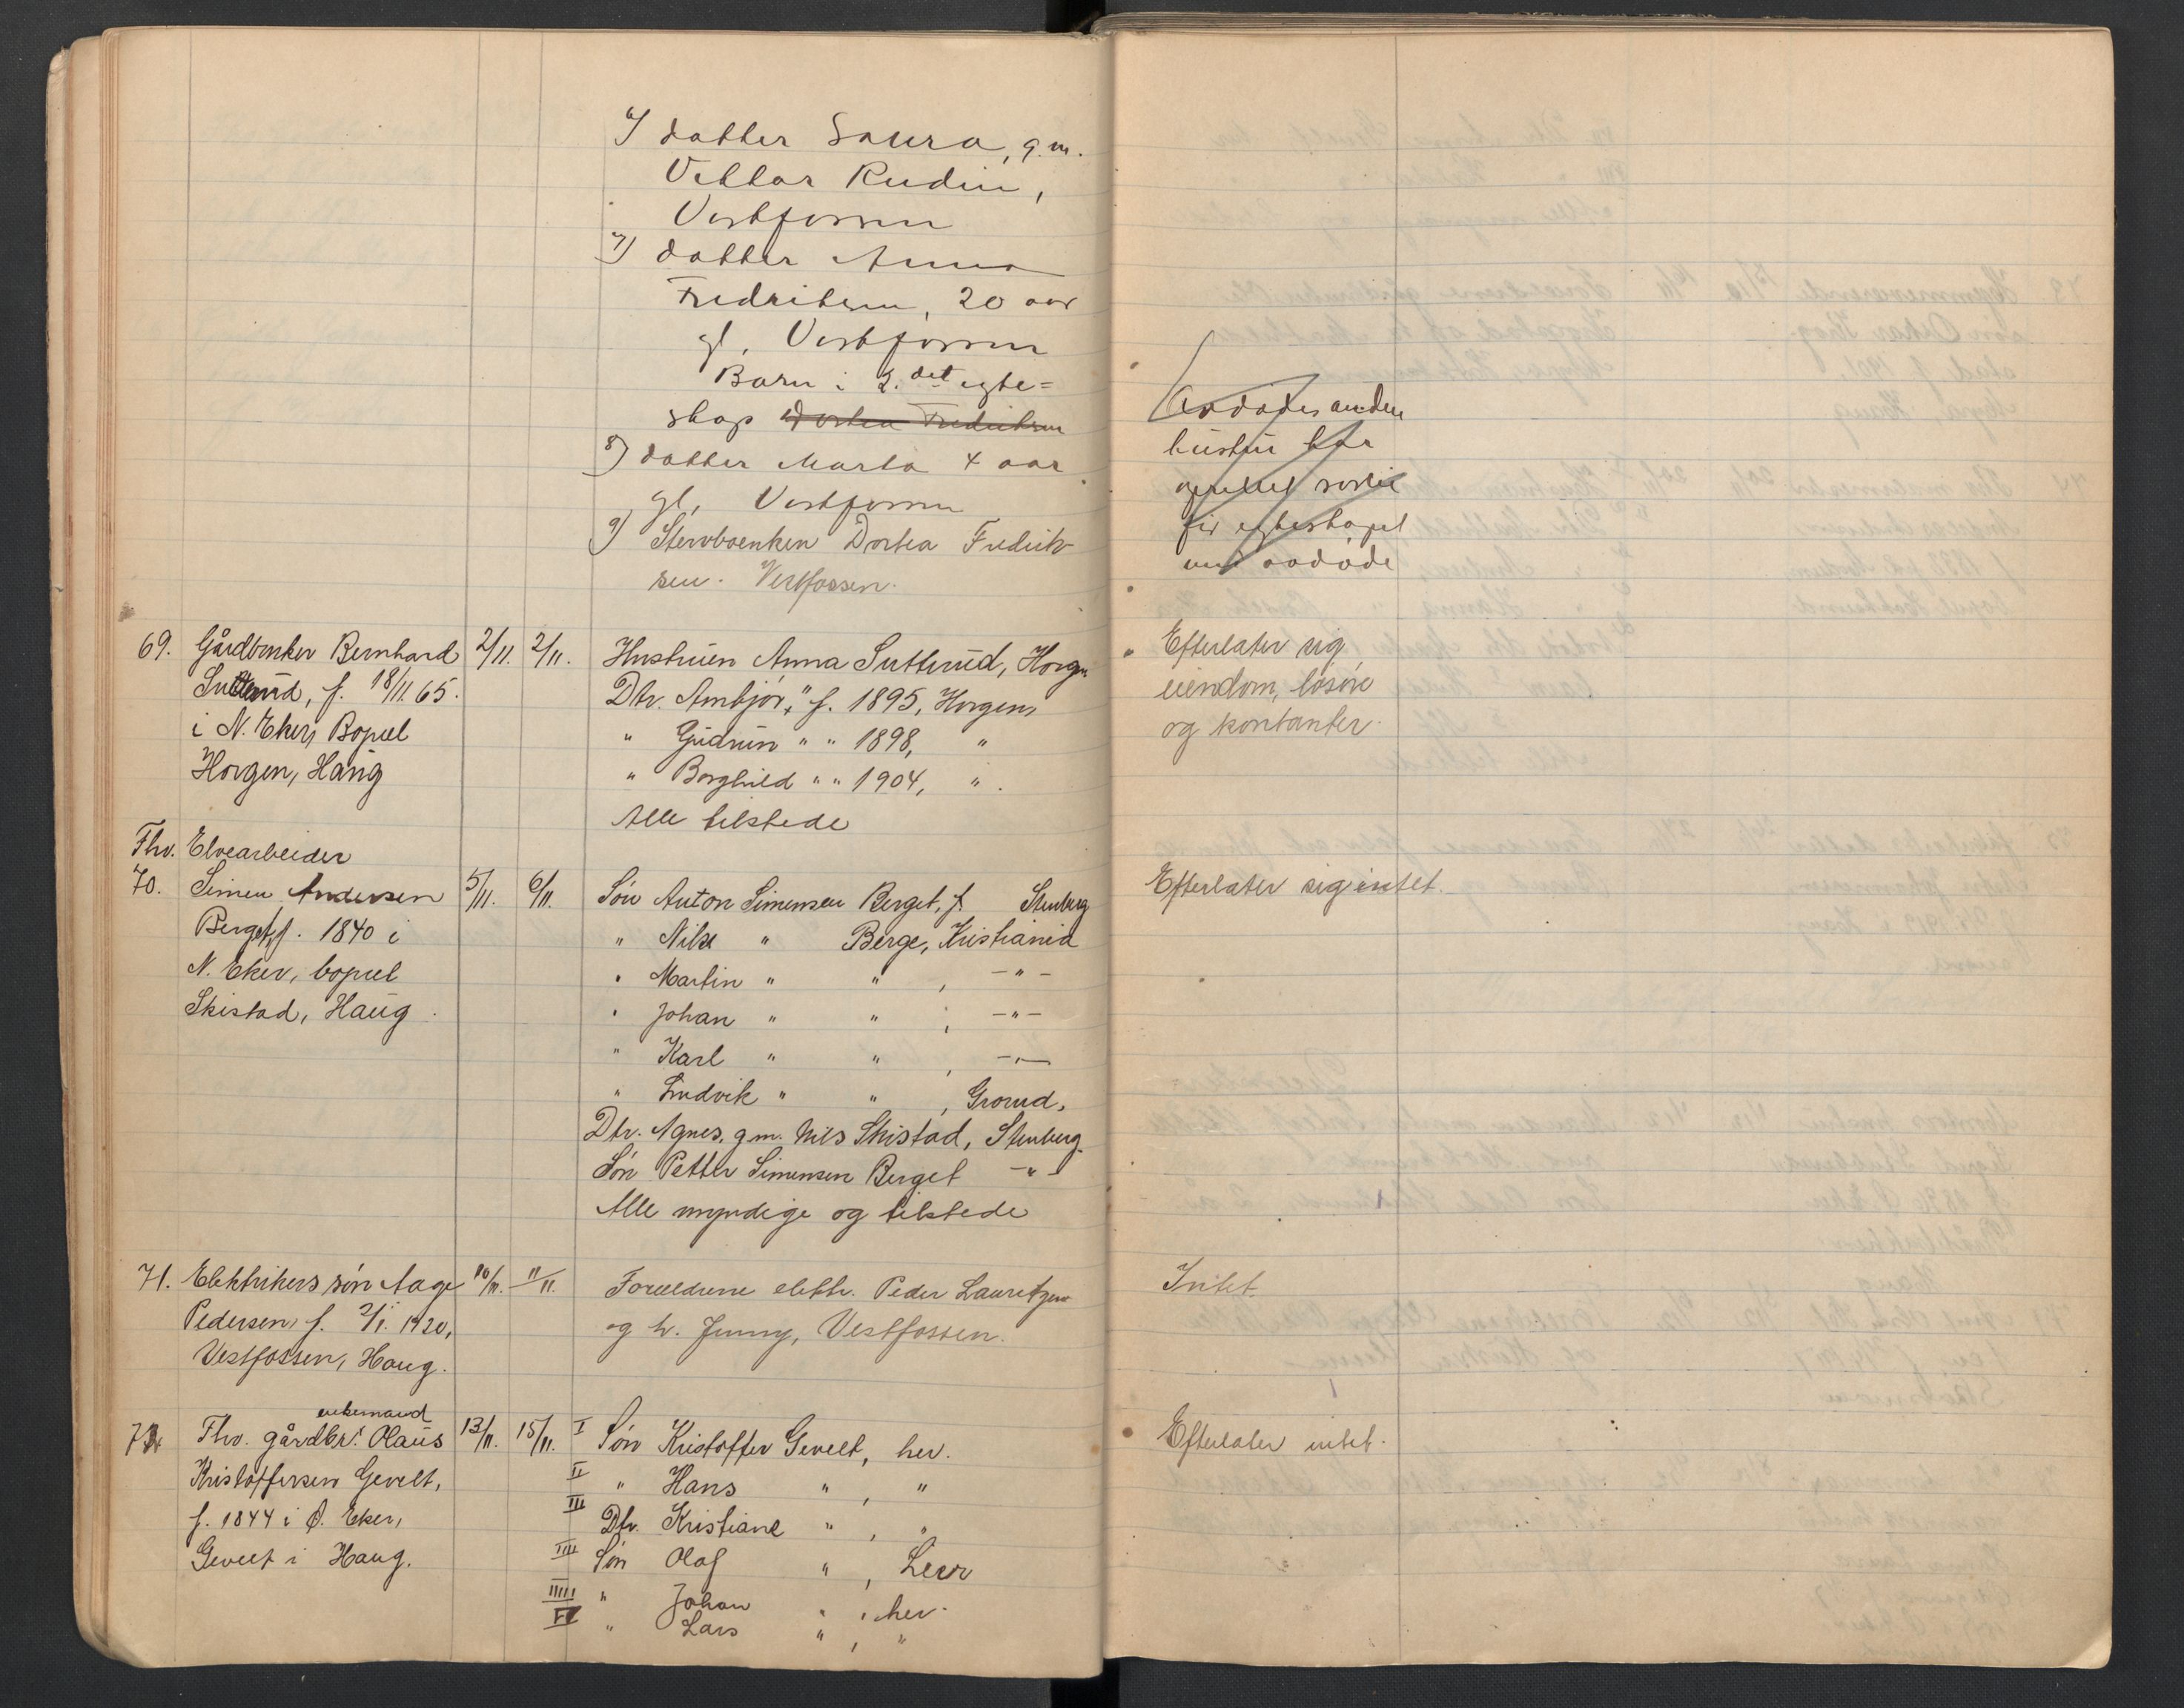 6) datter Laura, g.m.
Viktor Rudin,
Vestfossen
7) datter Anna
Fredriksen, 20 aar
gl, Vestfossen
Barn i 2.det egte=
skap Dortea Fredriksen
8) datter Marta 4 aar
gl, Vestfossen
9) Stervboenken Dortea Fredrik-
sen. Vestfossen.
Avdødes anden
hustru har
før egteskapet
med avdøde
69. Gårdbruker Bernhard 2/11. 2/11. Hustruen Anna Sutterud, Horgen
Sutterud, f. 18/11.65. Dtr. Ambjør, " f. 1895, Horgen,
i N. Eker, Bopæl " Gudrun " " 1898, "
Horgen, Haug " Borghild " " 1904, " .
Alle tilstede
Efterlater sig
eiendom, løsøre
og kontanter.
Fhv. Elvearbeider
70. Simen Andersen 5/11. 6/11. Søn Anton Simensen Berget, f. Stenberg
Berget, f. 1840 i " Nils " Berge, Kristiania
N. Eker, bopæl " Martin " " , -"-
Skistad, Haug. " Johan " " , -"-
" Karl " " , -"-
" Ludvik " " , Grorud,
Dtr. Agnes, g.m. Nils Skistad, Stenberg.
Søn Petter Simensen Berget -"-
Alle myndige og tilstede
Efterlater sig intet.
71. Elektrikers søn Aage 10/11. 11/11. Forældrene elektr. Peder Lauritzen
Pedersen, f. 2/1. 1920, og h. Jenny, Vestfossen.
Vestfossen, Haug.
Intet.
enkemand
72 Fhv. gårdbr. Olaus 13/11. 15/11. I Søn Kristoffer Gevelt, her.
Kristoffersen Gevelt, II " Hans " , "
f. 1844 i Ø. Eker, III Dtr. Kristiane " , "
Gevelt i Haug. IIII Søn Olaf " , Lier
IIIII " Johan " , her.
VI " Lars " , "
Efterlater intet.